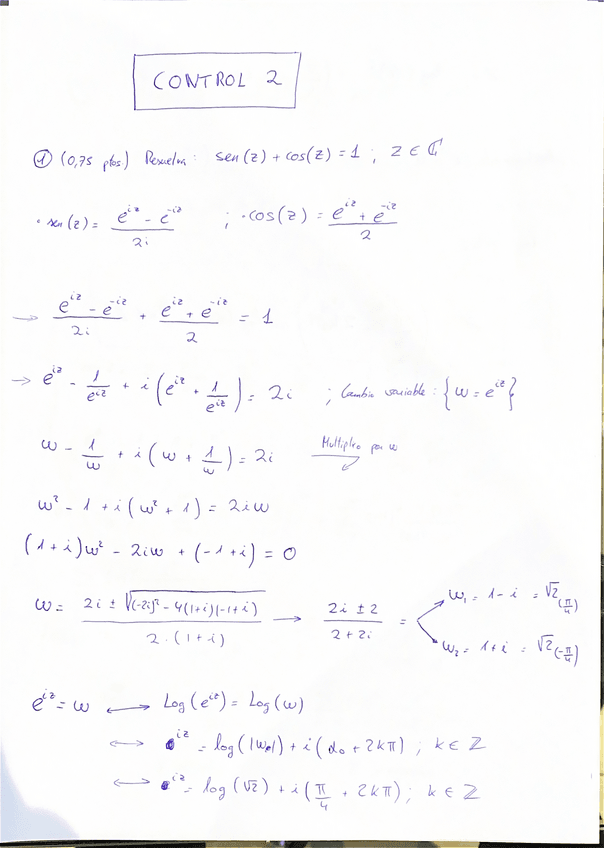 CONTROL 2
① (0,75 ptos) Resuelva: sen(z) + cos(z) = 1 ; z ∈ ℂ
· sen(z) = (e^{iz} - e^{-iz}) / 2i ; · cos(z) = (e^{iz} + e^{-iz}) / 2
→ (e^{iz} - e^{-iz}) / 2i + (e^{iz} + e^{-iz}) / 2 = 1
→ e^{iz} - 1/e^{iz} + i(e^{iz} + 1/e^{iz}) = 2i ; Cambio variable: {w = e^{iz}}
w - 1/w + i(w + 1/w) = 2i Multiplico por w
w² - 1 + i(w² + 1) = 2iw
(1+i)w² - 2iw + (-1+i) = 0
w = (2i ± √((-2i)² - 4(1+i)(-1+i))) / (2·(1+i)) → (2i ± 2) / (2+2i) =
w₁ = 1 - i = √2_{(π/4)}
w₂ = 1 + i = √2_{(-π/4)}
e^{iz} = w ⟷ Log(e^{iz}) = Log(w)
⟷ iz = log(|w|) + i(α₀ + 2kπ) ; k ∈ ℤ
⟷ iz = log(√2) + i(π/4 + 2kπ) ; k ∈ ℤ